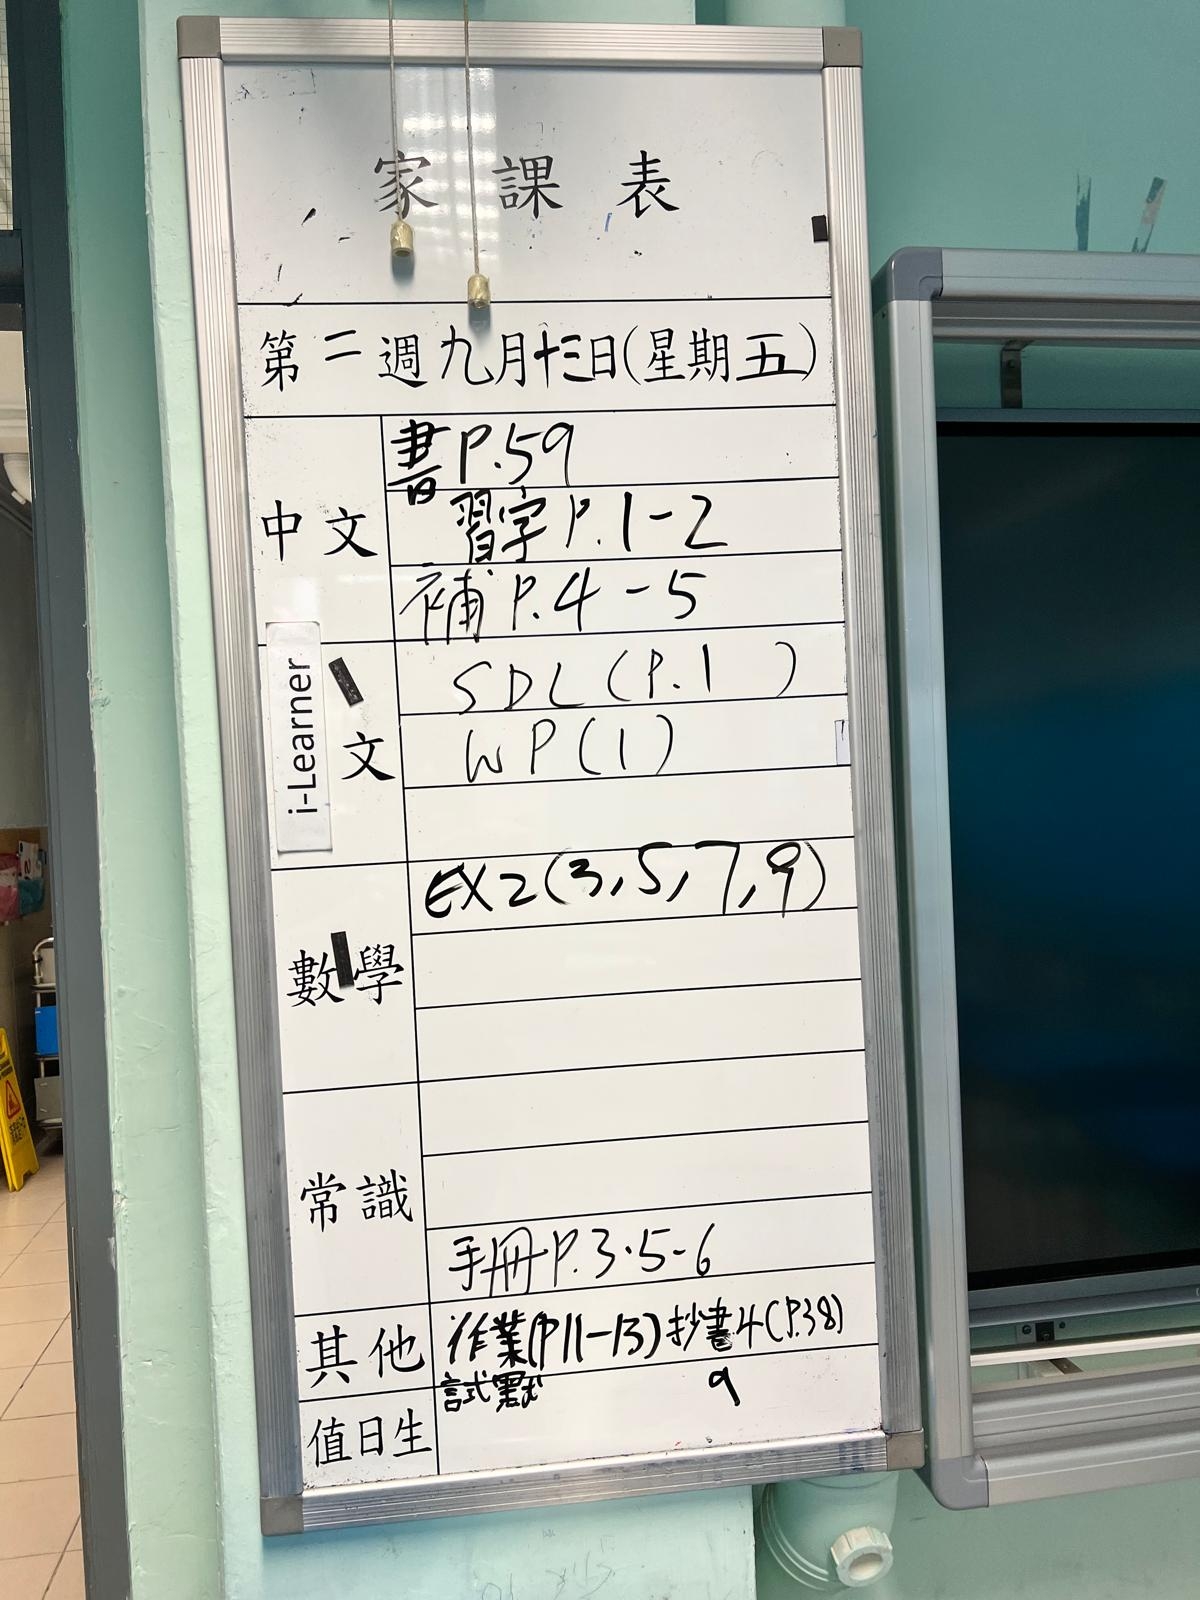 家課表
第二週九月十三日(星期五)
中文
書P.59
習字P.1-2
補P.4-5
i-Learner
文
SDL(P.1 )
WP(1)
數學
EX2(3,5,7,9)
常識
手冊P.3.5-6
其他
作業(P11-13)抄書4(P.38)
試默
9
值日生